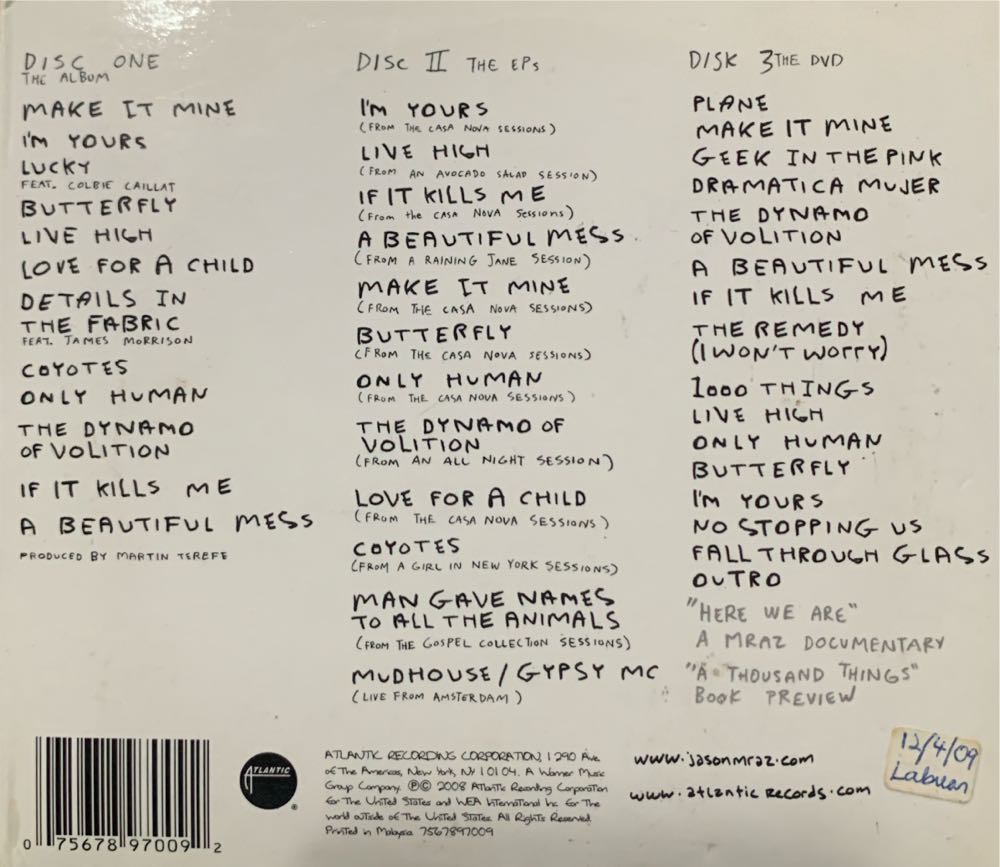 DISC ONE
THE ALBUM
MAKE IT MINE
I'M YOURS
LUCKY
FEAT. COLBIE CAILLAT
BUTTERFLY
LIVE HIGH
LOVE FOR A CHILD
DETAILS IN
THE FABRIC
FEAT. JAMES MORRISON
COYOTES
ONLY HUMAN
THE DYNAMO
OF VOLITION
IF IT KILLS ME
A BEAUTIFUL MESS
PRODUCED BY MARTIN TEREFE
DISC II THE EPs
I'M YOURS
(FROM THE CASA NOVA SESSIONS)
LIVE HIGH
(FROM AN AVOCADO SALAD SESSION)
IF IT KILLS ME
(From the CASA NOVA Sessions)
A BEAUTIFUL MESS
(FROM A RAINING JANE SESSION)
MAKE IT MINE
(FROM THE CASA NOVA SESSIONS)
BUTTERFLY
(FROM THE CASA NOVA SESSIONS)
ONLY HUMAN
(FROM THE CASA NOVA SESSIONS)
THE DYNAMO OF
VOLITION
(FROM AN ALL NIGHT SESSION)
LOVE FOR A CHILD
(FROM THE CASA NOVA SESSIONS)
COYOTES
(FROM A GIRL IN NEW YORK SESSIONS)
MAN GAVE NAMES
TO ALL THE ANIMALS
(FROM THE GOSPEL COLLECTION SESSIONS)
MUDHOUSE/GYPSY MC
(LIVE FROM AMSTERDAM)
DISK 3 THE DVD
PLANE
MAKE IT MINE
GEEK IN THE PINK
DRAMATICA MUJER
THE DYNAMO
OF VOLITION
A BEAUTIFUL MESS
IF IT KILLS ME
THE REMEDY
(I WON'T WORRY)
1000 THINGS
LIVE HIGH
ONLY HUMAN
BUTTERFLY
I'M YOURS
NO STOPPING US
FALL THROUGH GLASS
OUTRO
"HERE WE ARE"
A MRAZ DOCUMENTARY
"A THOUSAND THINGS"
BOOK PREVIEW
0 75678 97009 2
ATLANTIC
®
ATLANTIC RECORDING CORPORATION, 1290 Ave.
of The Americas, New York, NY 10104. A Warner Music
Group Company. ℗© 2008 Atlantic Recording Corporation
for The United States and WEA International Inc. for The
world outside of The United States. All Rights Reserved.
Printed in Malaysia 7567897009
www.jasonmraz.com
www.atlantic Records.com
12/4/09
Labuan